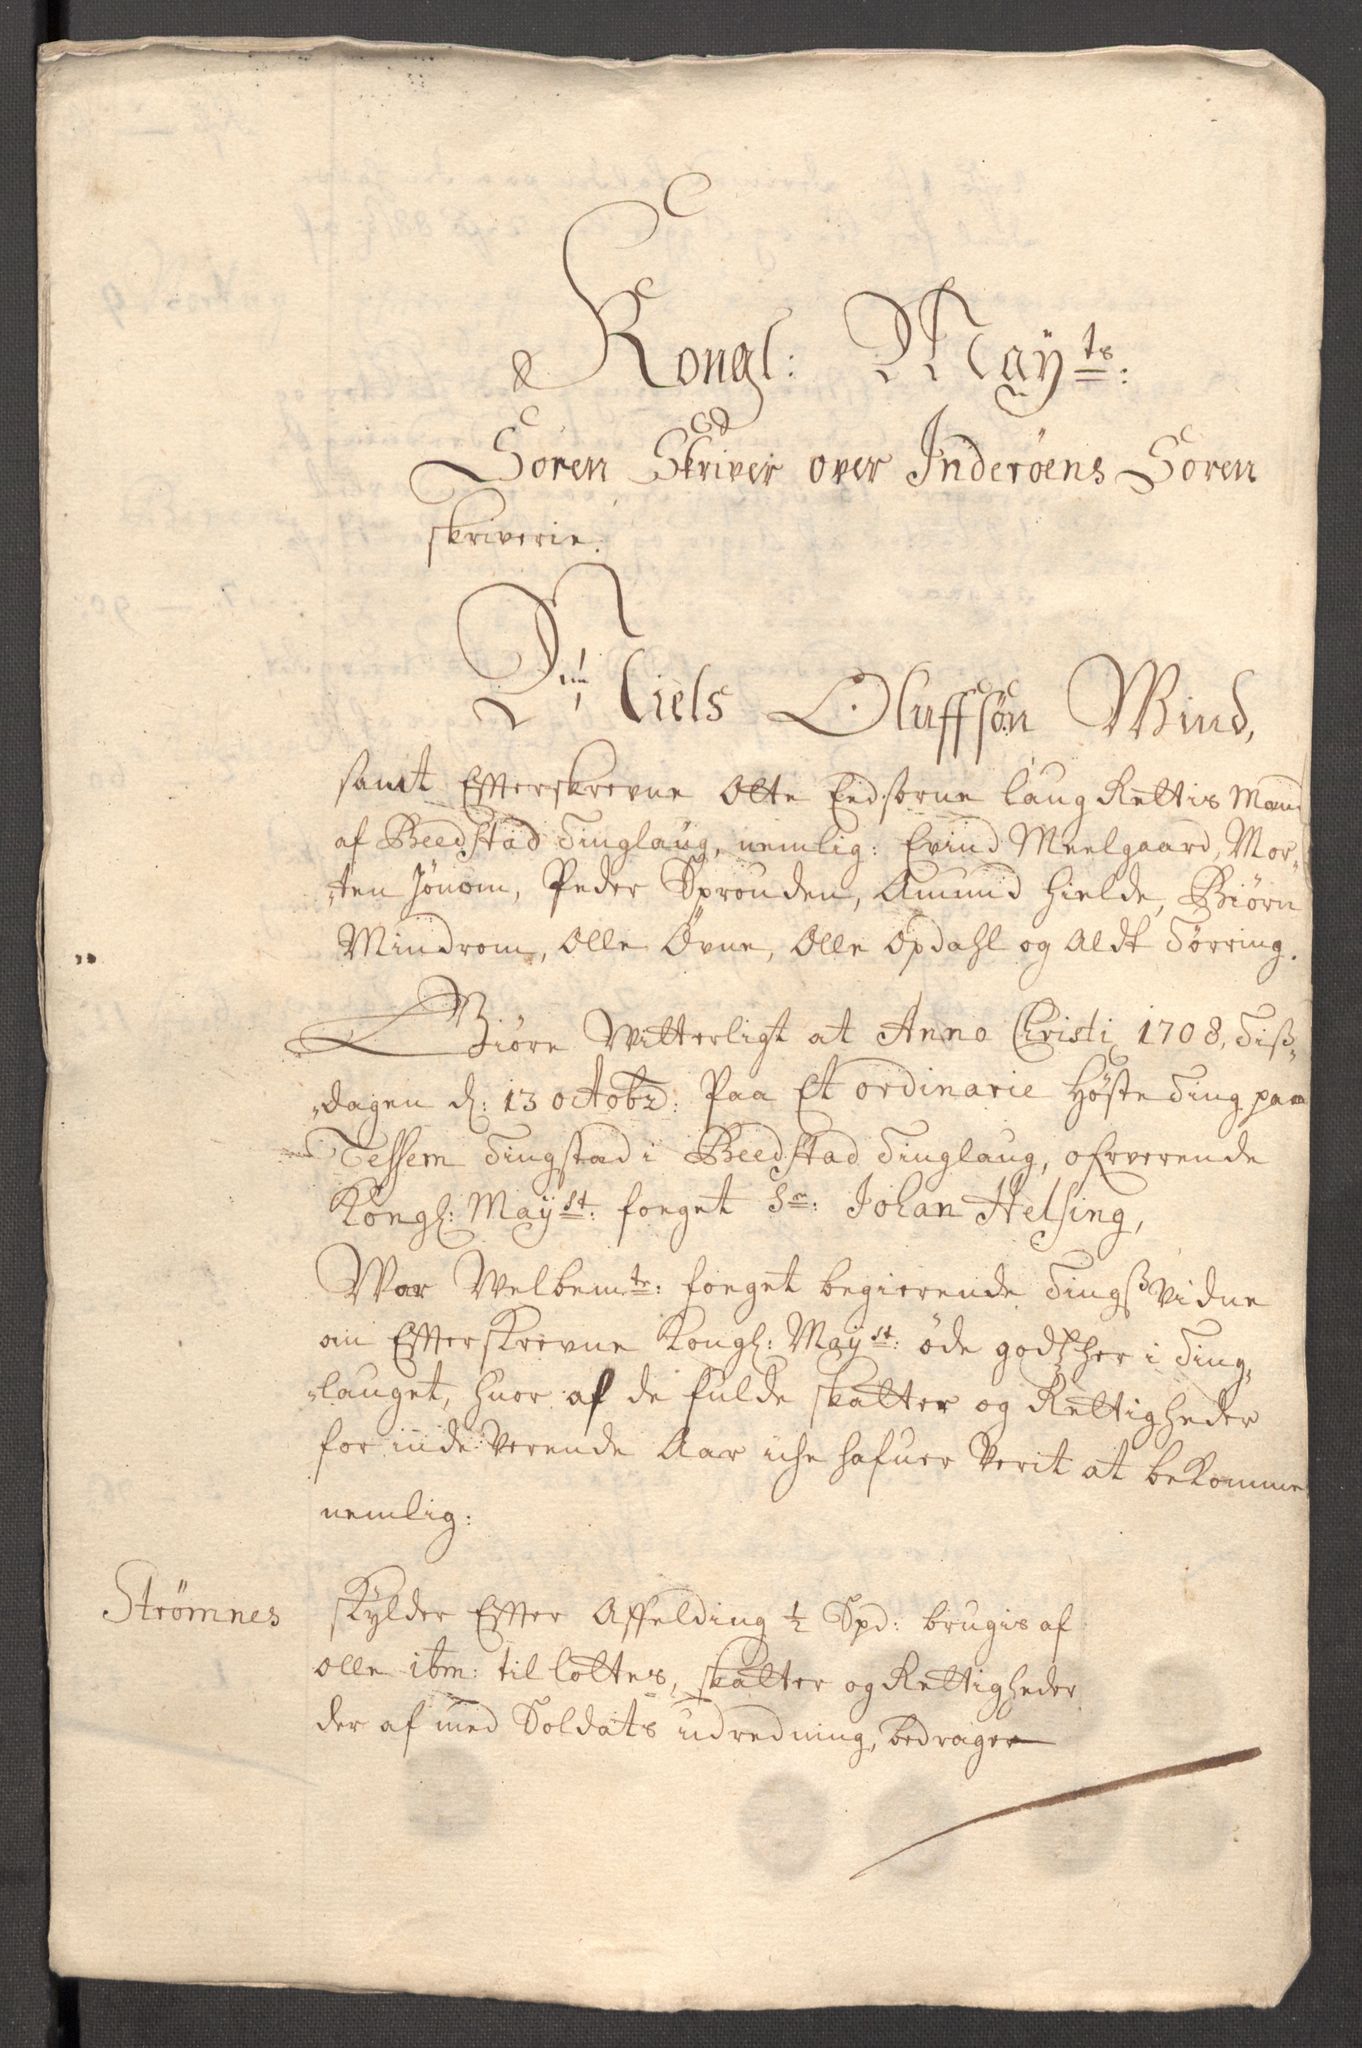 Kongl: Maÿts:
Soren Skriver over Inderöens Soren
skriverie.
Niels Oluffsön Wind,
samt Effterskrevne Otte Eedsorne laug Rettis Mænd
af Beedstad Tinglaug, nemlig: Evind Meelgaard, Mor-
-ten Jönom, Peder Sprouden, Amund Hielde, Biörn
Mindrom, Olle Övne, Olle Opdahl og Aldt Törring.
Giöre Witterligt at Anno Christi 1708, Tiss-
-dagen d: 13 octobr: Paa Et ordinarie Höste Ting paa
Tessem Tingstad i Beedstad Tinglaug, ofrverende
Kongl: Maÿst: foeget Sr: Johan Helsing,
War Welbemte: foeget begierende Tingss Vidne
om Effterskrevne Kongl: Maÿst: öde godtz her i Ting-
-lauget, huor af de fulde skatter og Rettigheder
for inde Verende Aar iche hafuer Verit at bekomme
nemlig:
Strömnes skÿlder Effter Affelding 1/2 Spd: brugis af
Olle ibm: til lottes, skatter og Rettigheder
der af med Soldats udredning, bedrager